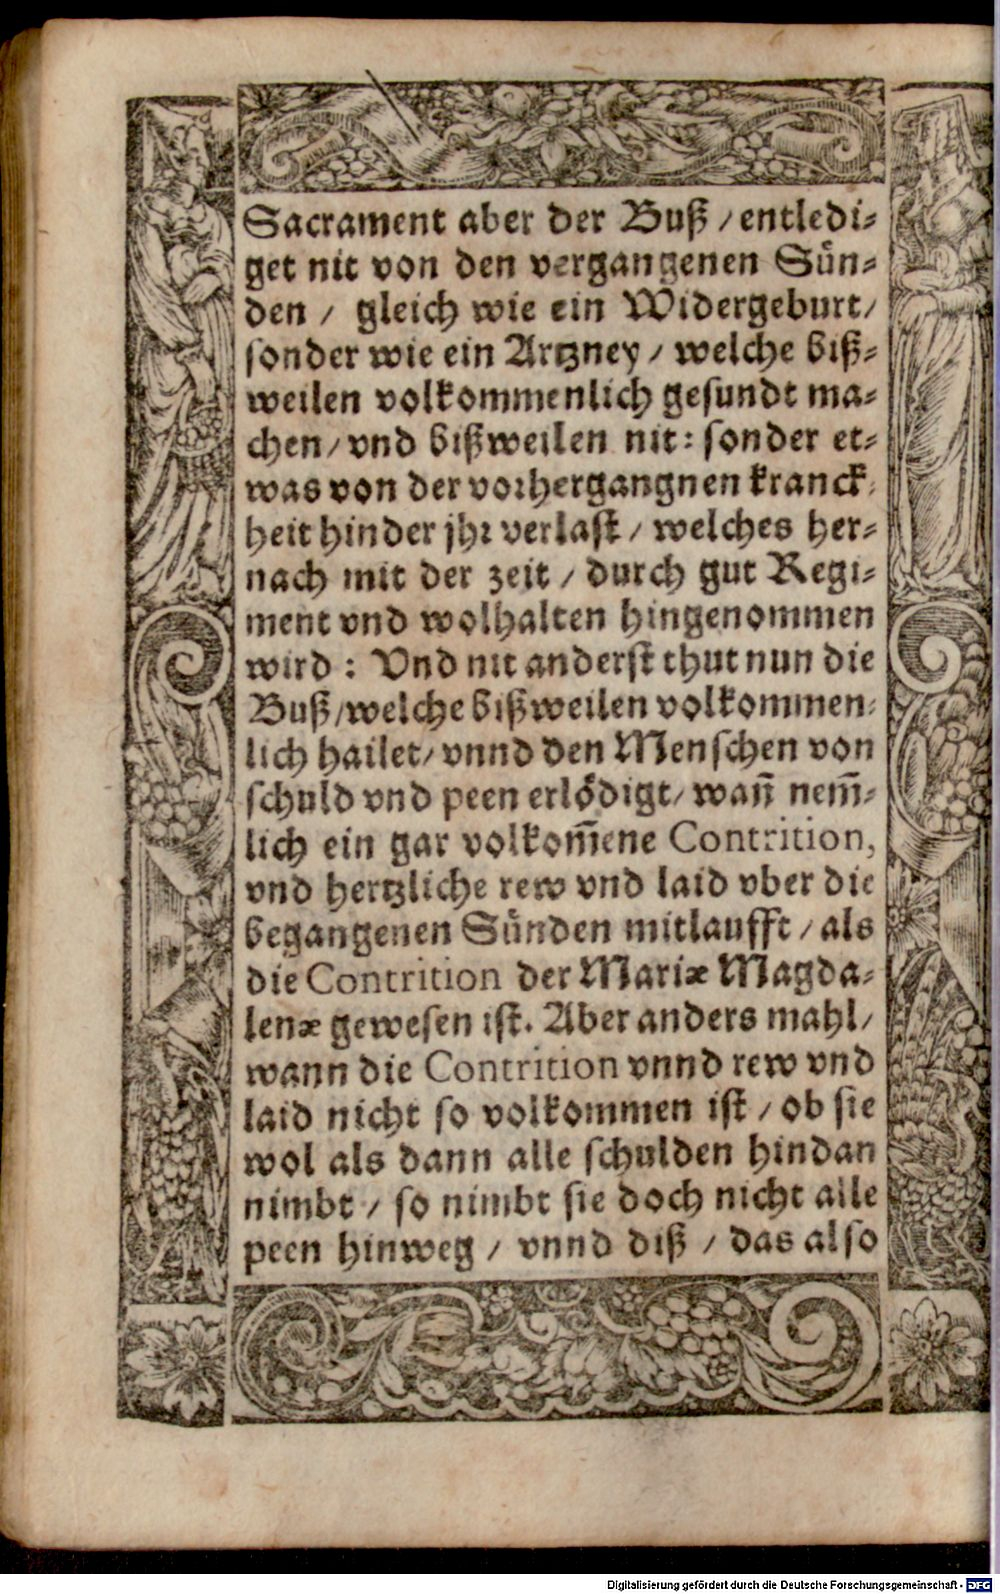 Sacrament aber der Buß / entledi⸗
get nit von den vergangenen Sün⸗
den / gleich wie ein Widergeburt /
sonder wie ein Artzney / welche biß⸗
weilen volkommenlich gesundt ma⸗
chen / vnd bißweilen nit: sonder et⸗
was von der vorhergangnen kranck⸗
heit hinder jhr verlast / welches her⸗
nach mit der zeit / durch gut Regi⸗
ment vnd wolhalten hingenommen
wird : Vnd nit anderst thut nun die
Buß / welche bißweilen volkommen⸗
lich hailet / vnnd den Menschen von
schuld vnd peen erlödigt / wañ nem̃⸗
lich ein gar volkom̃ene Contrition,
vnd hertzliche rew vnd laid vber die
begangenen Sünden mitlaufft / als
die Contrition der Mariæ Magda⸗
lenæ gewesen ist. Aber anders mahl /
wann die Contrition vnnd rew vnd
laid nicht so volkommen ist / ob sie
wol als dann alle schulden hindan
nimbt / so nimbt sie doch nicht alle
peen hinweg / vnnd diß / das also
Digitalisierung gefördert durch die Deutsche Forschungsgemeinschaft - DFG